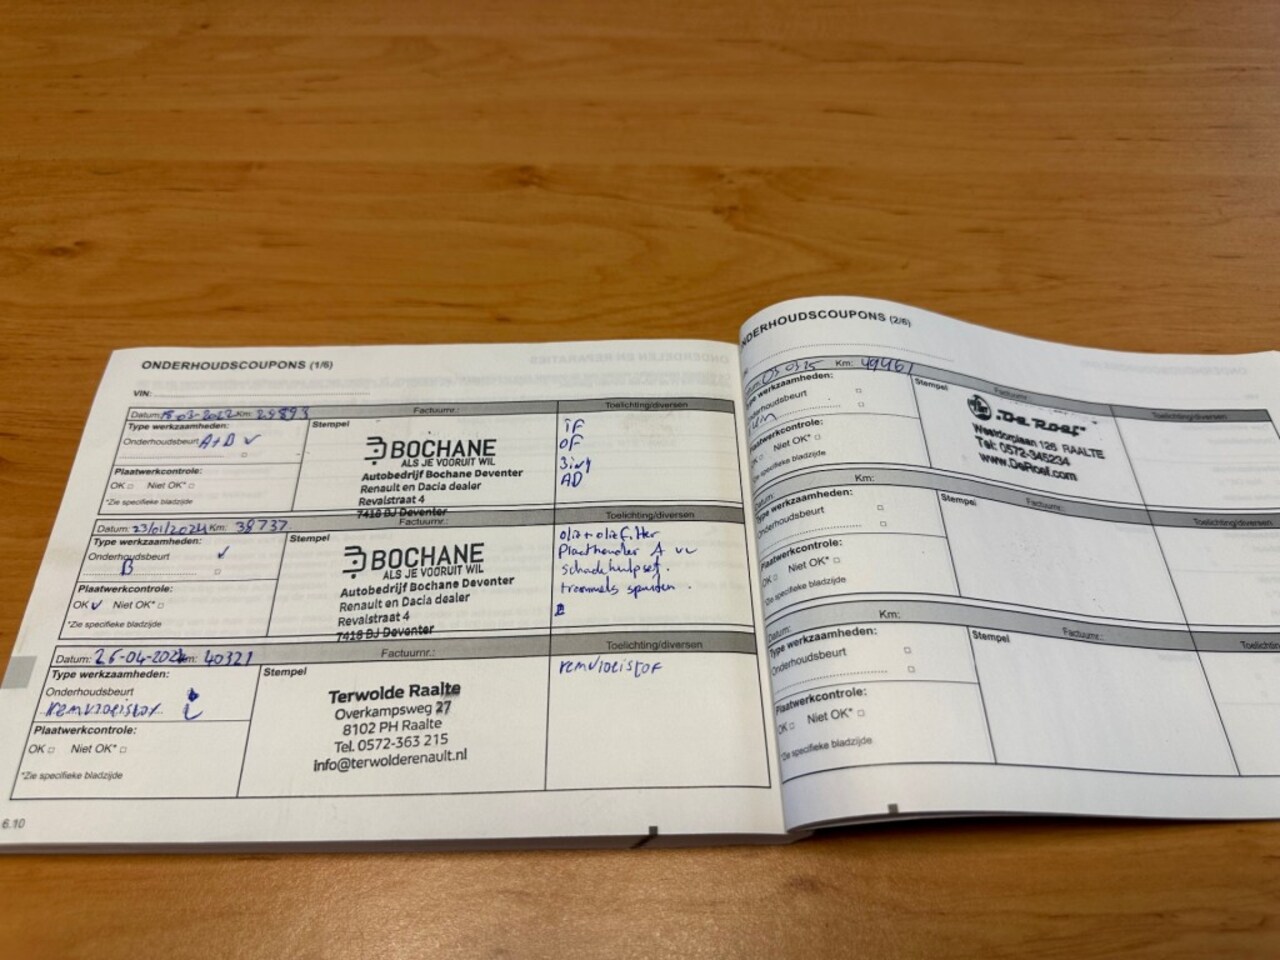 ONDERHOUDSCOUPONS (1/6)
VIN:
Datum: 18-03-2022 Km: 29893
Factuurnr.:
Toelichting/diversen
Type werkzaamheden:
Onderhoudsbeurt A+B ✓
Plaatwerkcontrole:
OK □ Niet OK* □
*Zie specifieke bladzijde
Stempel
BOCHANE
ALS JE VOORUIT WIL
Autobedrijf Bochane Deventer
Renault en Dacia dealer
Revalstraat 4
7418 BJ Deventer
iF
OF
AD
Datum: 23/01/2024 Km: 38737
Factuurnr.:
Toelichting/diversen
Type werkzaamheden:
Onderhoudsbeurt ✓
B
Plaatwerkcontrole:
OK ✓ Niet OK* □
*Zie specifieke bladzijde
Stempel
BOCHANE
ALS JE VOORUIT WIL
Autobedrijf Bochane Deventer
Renault en Dacia dealer
Revalstraat 4
7418 BJ Deventer
olie+oliefilter
A
schadehulpset.
trommels
Datum: 26-04-2024 Km: 40321
Factuurnr.:
Toelichting/diversen
Type werkzaamheden:
Onderhoudsbeurt
remvloeistof
Plaatwerkcontrole:
OK □ Niet OK* □
*Zie specifieke bladzijde
Stempel
Terwolde Raalte
Overkampsweg 27
8102 PH Raalte
Tel. 0572-363 215
info@terwolderenault.nl
remvloeistof
6.10
NDERHOUDSCOUPONS (2/6)
03 03 25 Km: 49461
Factuurnr.:
Toelichting/diversen
Type werkzaamheden:
nderhoudsbeurt
Plaatwerkcontrole:
OK □ Niet OK* □
*Zie specifieke bladzijde
Stempel
De Roef
125 RAALTE
Tel: 0572-345234
www.DeRoef.com
Datum:
Km:
Factuurnr.:
Toelichting
Type werkzaamheden:
Onderhoudsbeurt
Plaatwerkcontrole:
OK □ Niet OK* □
*Zie specifieke bladzijde
Stempel
Datum:
Km:
Factuurnr.:
Toelichtin
Type werkzaamheden:
Onderhoudsbeurt
Plaatwerkcontrole:
OK □ Niet OK* □
*Zie specifieke bladzijde
Stempel